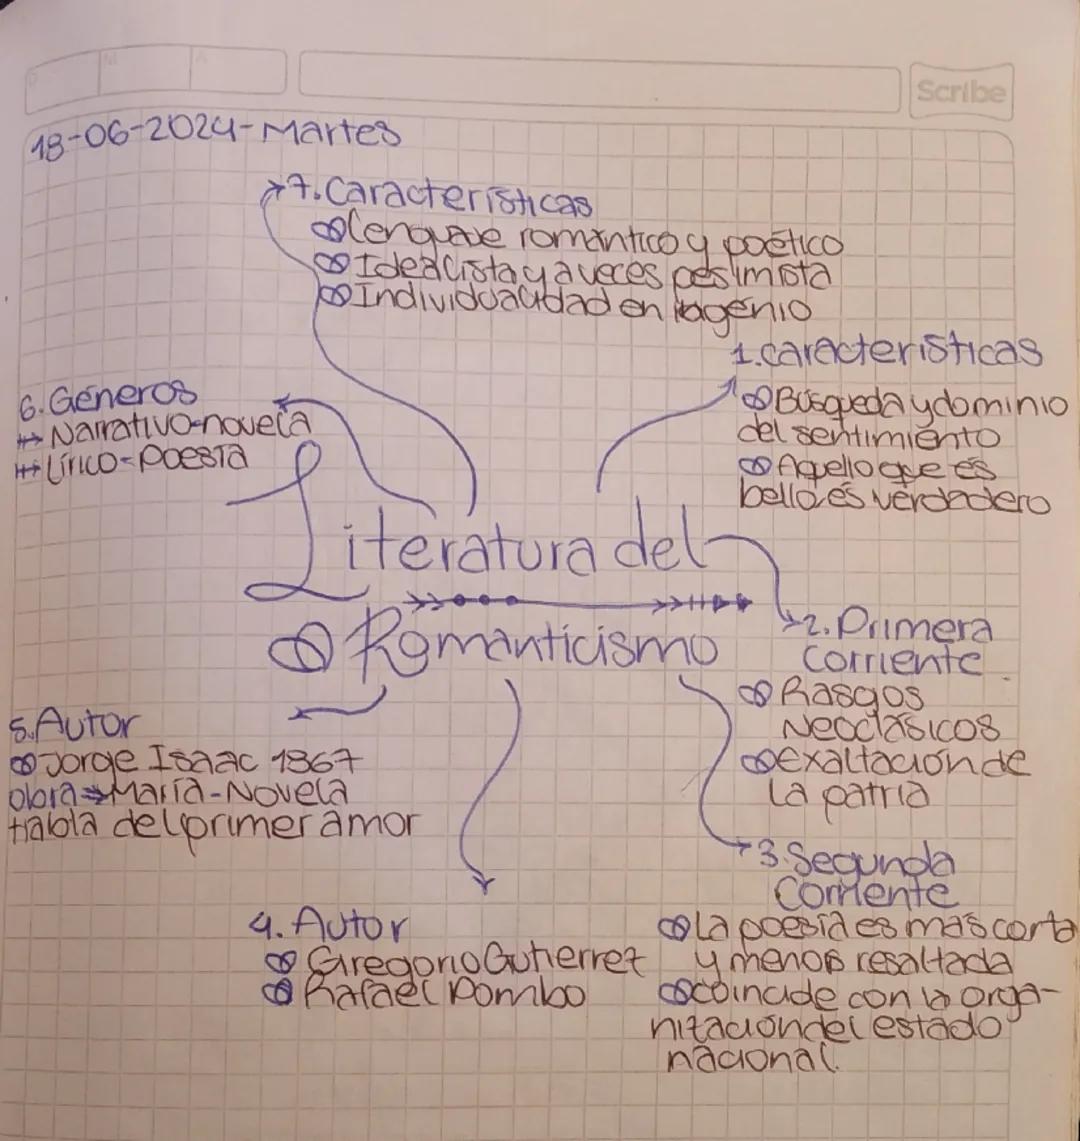 Scribe
18-06-2024-Martes
7. Características
Lenguaje romántico y poético
Idealista y a veces pesimista
Individualidad en la genio
1. características
Búsqueda y dominio
del sentimiento
Aquello que es
bello es verdadero
6. Géneros
Narrativo-novela
Lírico-Poesía
Literatura del
Romanticismo
2. Primera
Corriente
Rasgos
Neoclásicos
exaltación de
la patria
5. Autor
Jorge Isaac 1867
obra → María-Novela
Habla del primer amor
3. Segunda
Corriente
La poesía es más corta
y menos resaltada
coincide con la orga-
nización del estado
nacional.
4. Autor
Gregorio Gutierrez
Rafael Pombo